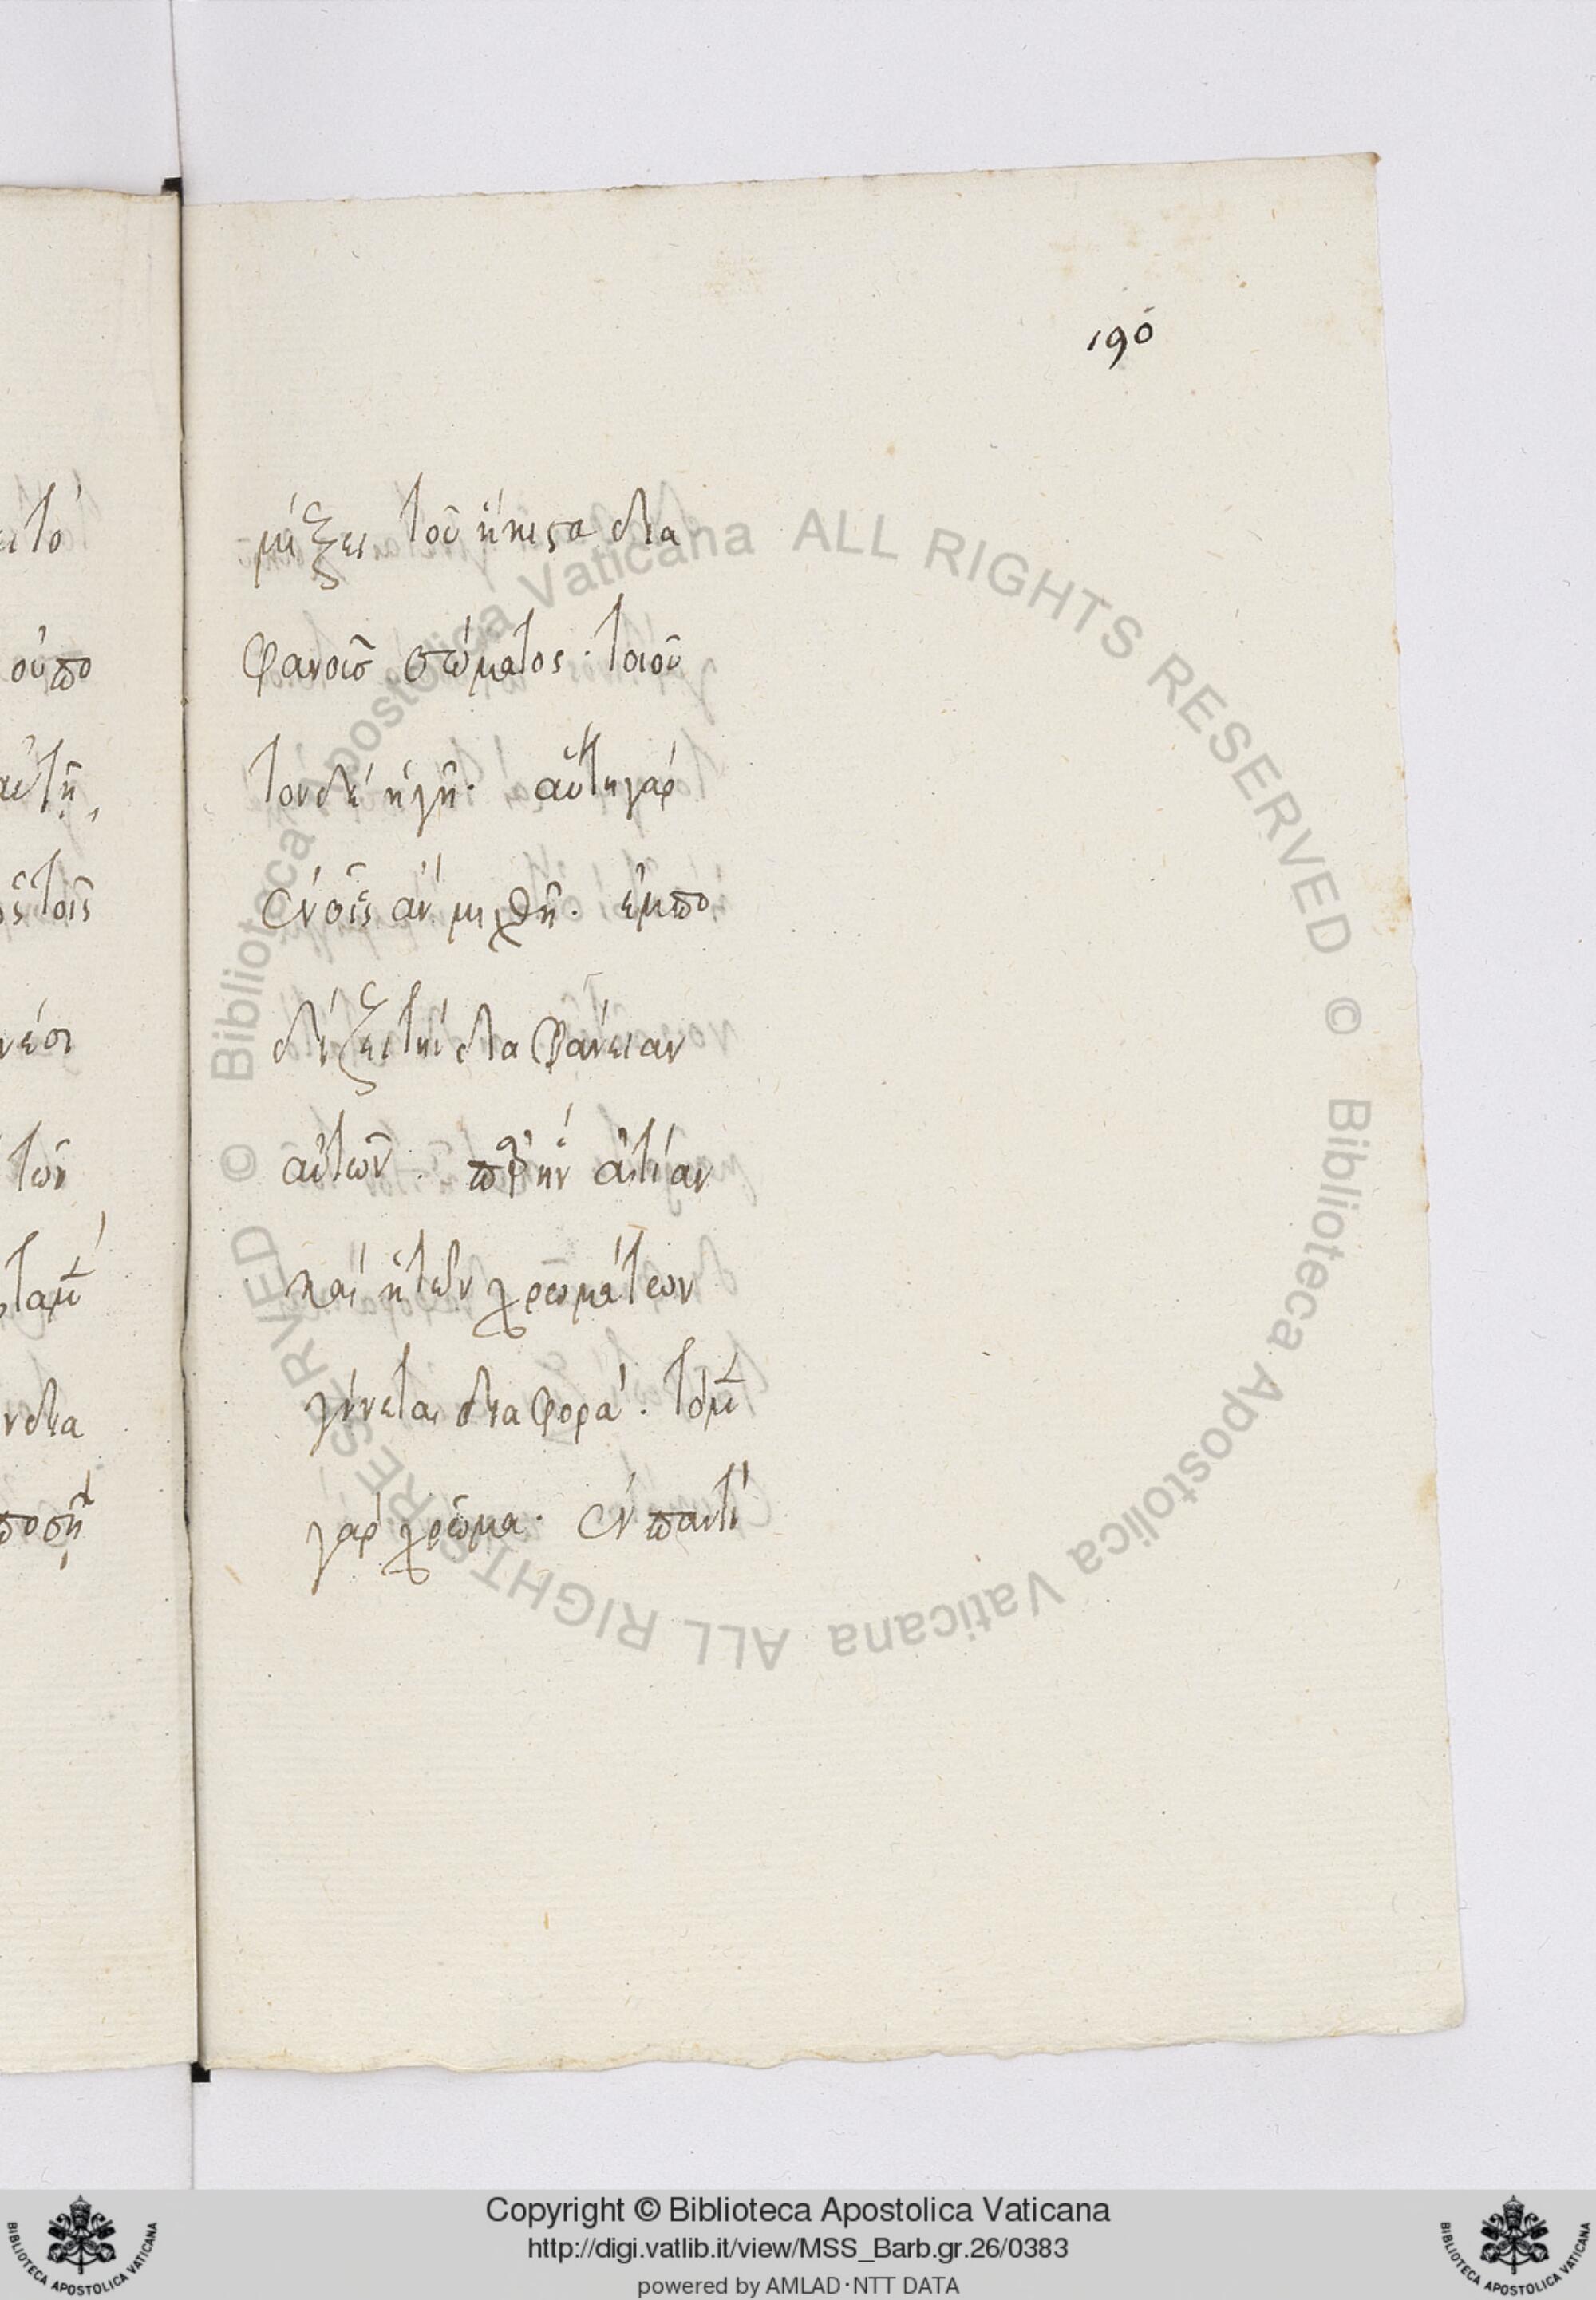 190
ει τό
μίξει τοῦ ἥκιστα δια
ούπο
φανοῦσ σώματος· τοιοῦ
αὐτῆ,
τον δὲ ἡ γῆ· αὕτη γάρ
τοῖς
ἐν οἷς ἂν μιχθῆ· ἐμπο
νέσι
δίζει τὴν διαφάνειαν
τῶν
αὐτῶν· παρ' ἣν αἰτίαν
καὶ ἡ τῶν χρωμάτων
νδια
γίνεται διαφορά· τὸ μὲν
ποσῆ
γὰρ χρῶμα· ἐν παντὶ
© Biblioteca Apostolica Vaticana ALL RIGHTS RESERVED © Biblioteca Apostolica Vaticana ALL RIGHTS RESERVED
Copyright © Biblioteca Apostolica Vaticana
http://digi.vatlib.it/view/MSS_Barb.gr.26/0383
powered by AMLAD·NTT DATA
BIBLIOTECA APOSTOLICA VATICANA
BIBLIOTECA APOSTOLICA VATICANA